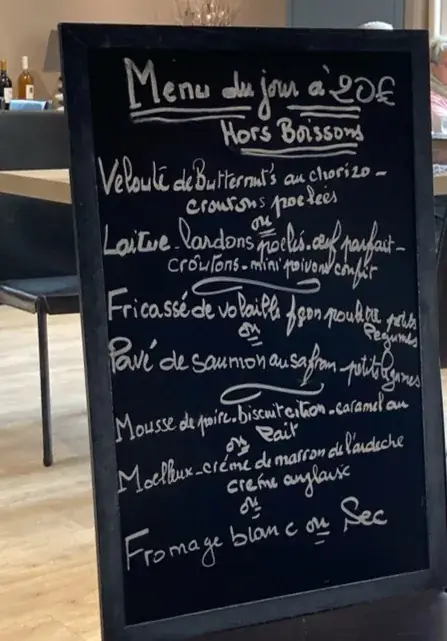 Menu du jour à 20€
Hors Boissons
Velouté de Butternut's au chorizo -
croutons poelées
ou
Laitue - lardons poelés - œuf parfait -
croûtons - mini poivrons confit
Fricassé de volaille façon poulette petits
légumes
ou
Pavé de saumon au safran - petits légumes
Mousse de poire - biscuit citron - caramel au
lait
ou
Moelleux - crème de marron de l'ardèche
creme anglaise
ou
Fromage blanc ou Sec